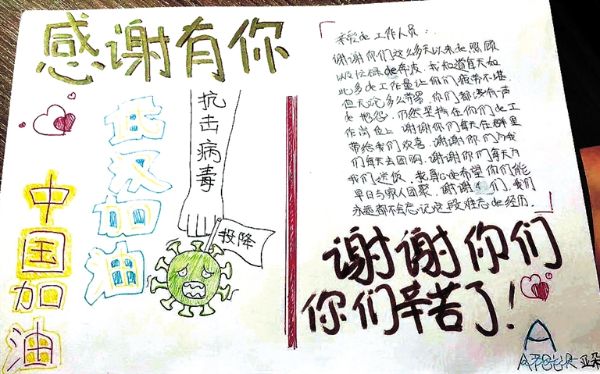 感谢有你
中国加油
武汉加油
抗击病毒
投降
亲爱de工作人员:
谢谢你们这么多天以来de照顾
de奔波,我知道每天如
此多de工作量让你们疲惫不堪
但无论多么辛劳,你们都没有一声
de抱怨,仍然坚持在你们de工
作岗位上。谢谢你们每天在群里
带给我们欢喜,谢谢你们为我
们每天去团购,谢谢你们每天为
我们送饭,我真心de希望你们能
早日与家人团聚。谢谢你们,我们
永远都不会忘记这段难忘de经历。
谢谢你们
你们辛苦了!
A
ATOUR 亚朵